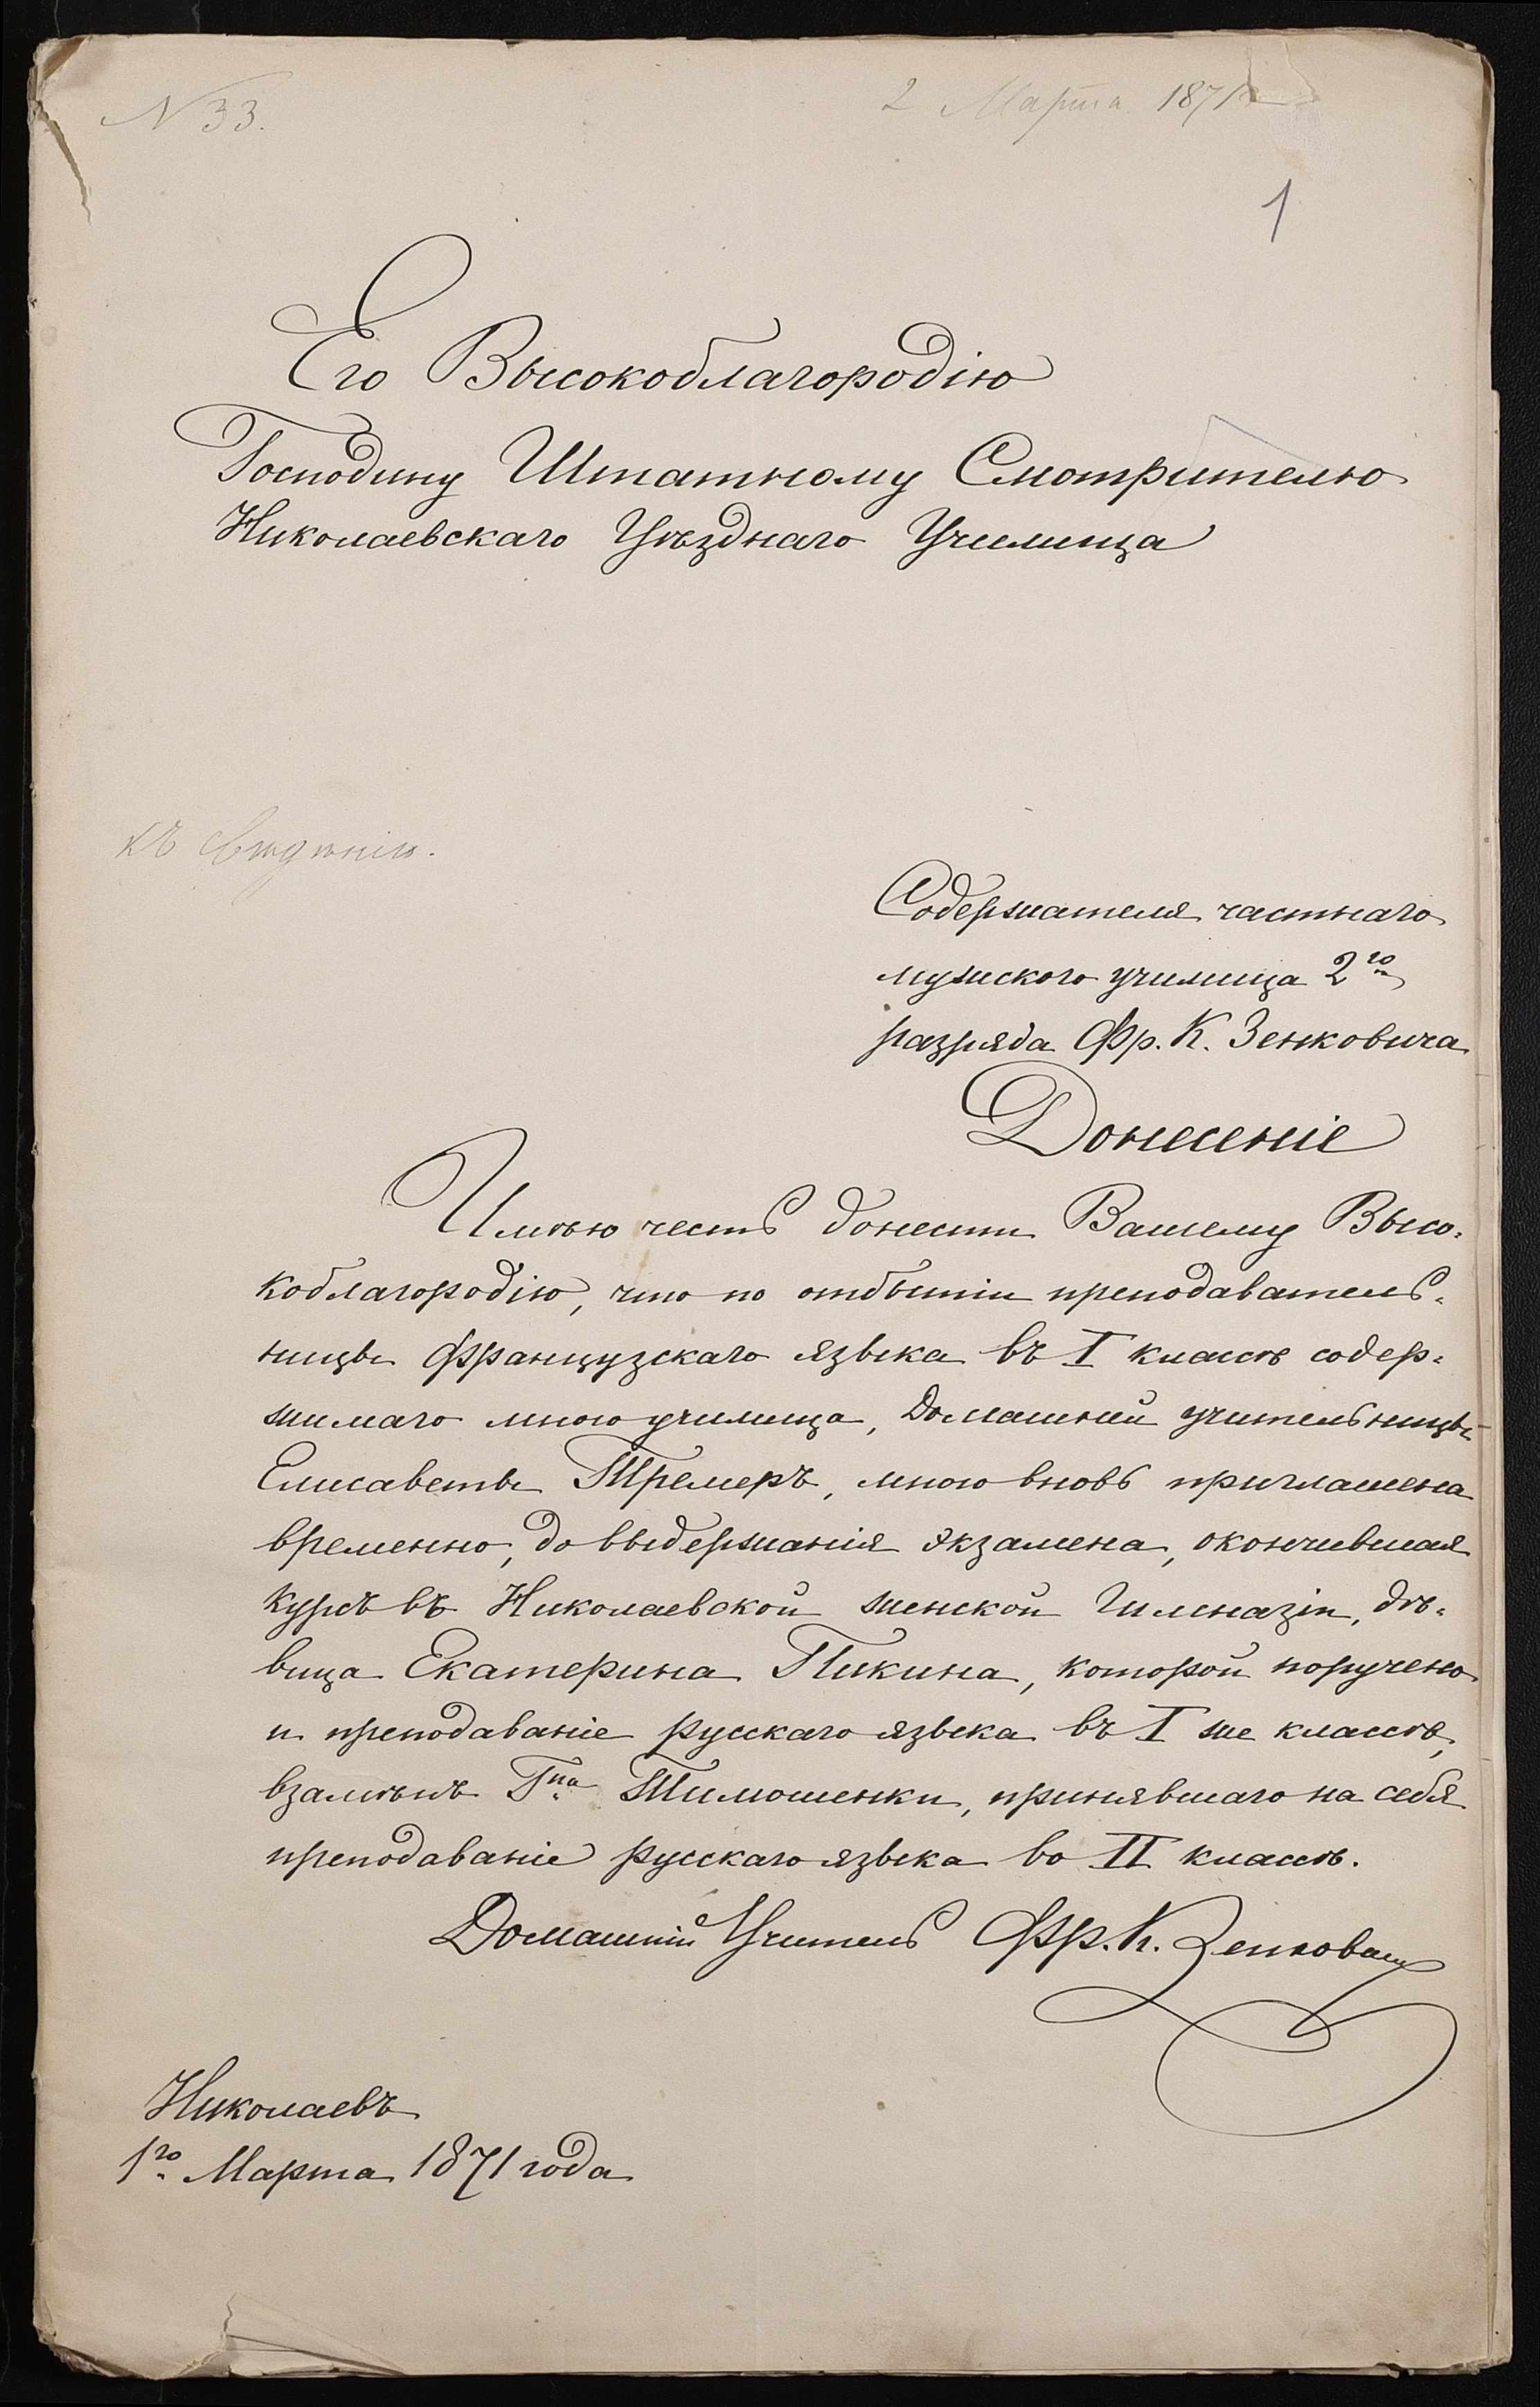 N 33.
2 Марта 1871
1
Его Высокоблагородію
Господину Штатному Смотрителю
Николаевскаго Уѣзднаго Училища
къ свѣдѣнію.
Содержателя частнаго
мужскаго училища 2го
разряда Фр. К. Зенковича
Донесеніе
Имѣю честь донести Вашему Высо-
коблагородію, что по отбытіи преподаватель-
ницы французскаго языка въ I классѣ содер-
жимаго мною училища, Домашней учительницы
Елисаветы Тремеръ, мною вновь приглашена
временно, до выдержанія экзамена, окончившая
курсъ въ Николаевской женской Гимназіи, дѣ-
вица Екатерина Пикина, которой поручено
и преподаваніе русскаго языка въ I же классѣ,
взамѣнъ Гна Тимошенки, принявшаго на себя
преподаваніе русскаго языка во II классѣ.
Домашній Учитель Фр. К. Зенкович
Николаевъ
1го Марта 1871 года